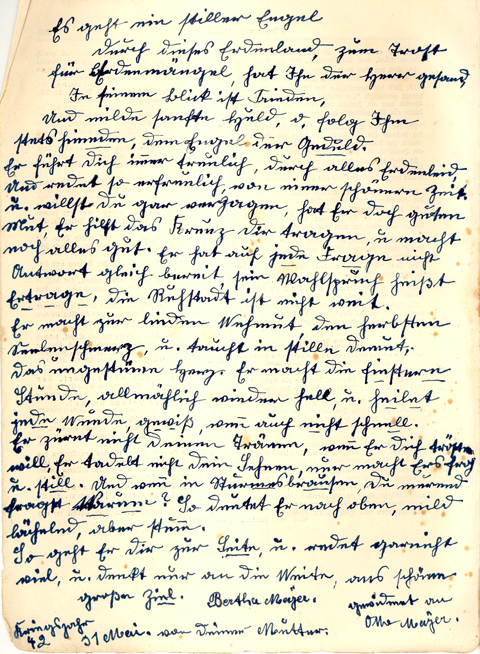 Es geht ein stiller Engel
Durch dieses Erdenland, zum Trost
für Erdenmängel, hat Ihn der Herr gesand,
In seinem Blick ist Frieden,
Und milde sanfte Huld, o, folg Ihm
stets hinieden, dem Engel der Geduld.
Er führt Dich immer treulich, durch alles Erdenleid,
Und redet so erfreulich, von einer schönern Zeit.
u. willst Du gar verzagen, hat Er doch guten
Mut, Er hilft das Kreuz Dir tragen, u. macht
noch alles gut. Er hat auf jede Frage nicht
Antwort gleich bereit sein Wahlspruch heißt
Ertrage, die Ruhstadt ist nicht weit.
Er macht zur linden Wehmut, den herbsten
Seelenschmerz, u. taucht in stille Demut,
das ungestüme Herz. Er macht die finstere
Stunde, allmählich wieder hell, u. heilet
jede Wunde, gewiß, wenn auch nicht schnell.
Er zürnt nicht Deinen Tränen, wenn Er Dich trösten
will, Er tadelt nicht Dein Sehnen, nur macht Ers
u. still. Und wenn in Sturmesbrausen, Du murrend
fragst Warum? So deutet Er nach oben, mild
lächelnd, aber stum.
So geht Er Dir zur Seite, u. redet garnicht
viel, u. denkt nur an die Weite, ans schöne
große Ziel. Bertha Mayer. gewidmet an
Kriegsjahr Otto Mayer.
42 31 Mai. von Deiner Mutter.